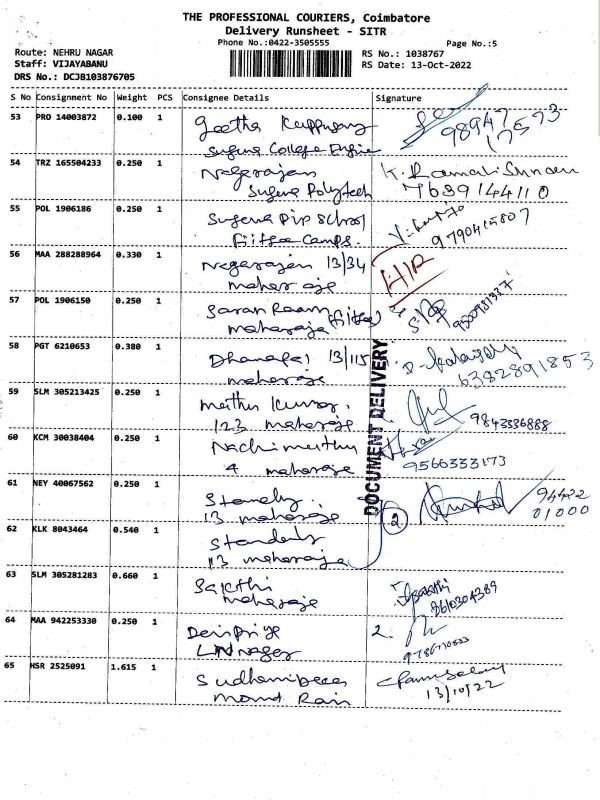 THE PROFESSIONAL COURIERS, Coimbatore
Delivery Runsheet - SITR
Phone No.:0422-3505555
Page No.:5
Route: NEHRU NAGAR
RS No.: 1038767
Staff: VIJAYABANU
RS Date: 13-Oct-2022
DRS No.: DCJB103876705
S No Consignment No Weight PCS Consignee Details Signature
53 PRO 14003872 0.100 1 Geetha 98947 17573
Suguna College Engine
54 TRZ 165504233 0.250 1 Nagarajan K. Ramali
Suguna Polytech 7689144110
55 POL 1906186 0.250 1 Suguna Pip School
Camps. 9790415807
56 MAA 288288964 0.330 1 Nagarajan 13/34 H/R
maharaje
57 POL 1906150 0.250 1 Saran Raam
maharaja
58 PGT 6210653 0.380 1 Dhanapal 13/115
maharaje 6382891853
59 SLM 305213425 0.250 1 Muthu Kumar
123 maharaje 9843336888
60 KCM 30038404 0.250 1 Nachimuthu
4 maharaje 9566333173
DOCUMENT DELIVERY
61 NEY 40067562 0.250 1 Stanely
13 maharaje 2 94422 01000
62 KLK 8043464 0.540 1
13 maharaje
63 SLM 305281283 0.660 1 Sakthi
maharaje 8610304389
64 MAA 942253330 0.250 1 2.
65 HSR 2525091 1.615 1
13/10/22